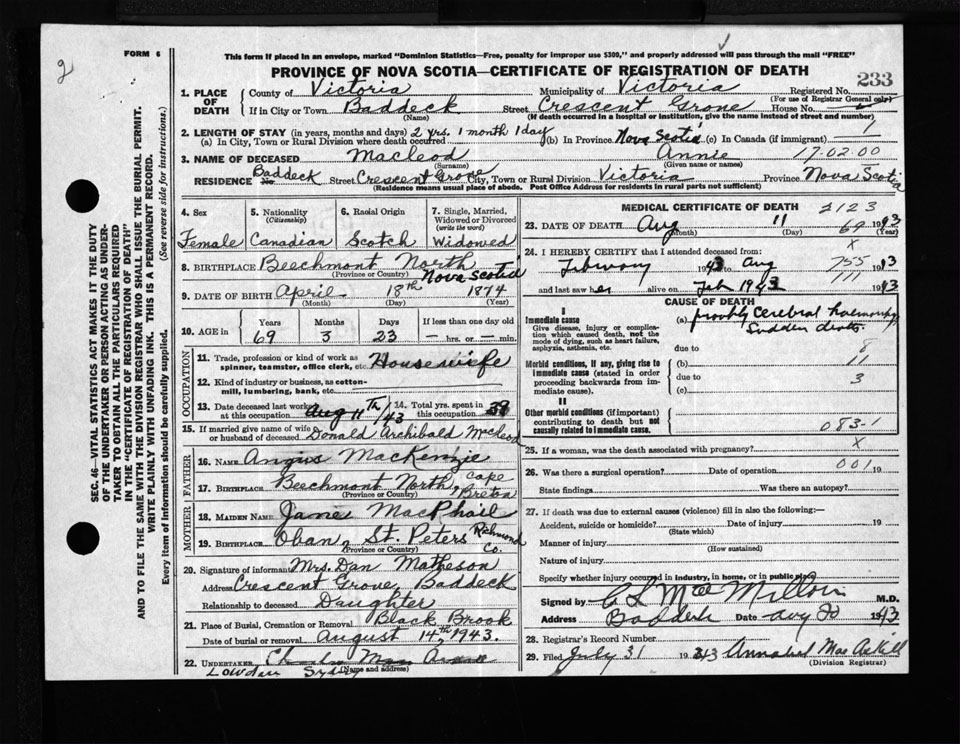 FORM 6
2
This form if placed in an envelope, marked "Dominion Statistics—Free, penalty for improper use $300," and properly addressed will pass through the mail "FREE"
PROVINCE OF NOVA SCOTIA—CERTIFICATE OF REGISTRATION OF DEATH
233
1. PLACE OF DEATH
County of Victoria Municipality of Victoria Registered No.
(For use of Registrar General only)
If in City or Town Baddeck Street Crescent Grove House No.
(Name) (If death occurred in a hospital or institution, give the name instead of street and number)
2. LENGTH OF STAY (in years, months and days) 2 yrs. 1 month 1 day
(a) In City, Town or Rural Division where death occurred (b) In Province Nova Scotia (c) In Canada (if immigrant)
1
3. NAME OF DECEASED Macleod Annie 17-02-00
(Surname) (Given name or names)
RESIDENCE No. Baddeck Street Crescent Grove City, Town or Rural Division Victoria Province Nova Scotia
(Residence means usual place of abode. Post Office Address for residents in rural parts not sufficient)
4. Sex
Female
5. Nationality (Citizenship)
Canadian
6. Racial Origin
Scotch
7. Single, Married, Widowed or Divorced (write the word)
Widowed
8. BIRTHPLACE Beechmont North Nova Scotia
(Province or Country)
9. DATE OF BIRTH April 18th 1874
(Month) (Day) (Year)
10. AGE in
Years Months Days If less than one day old
69 3 23 — hrs. or — min.
OCCUPATION
11. Trade, profession or kind of work as spinner, teamster, office clerk, etc. Housewife
12. Kind of industry or business, as cotton-mill, lumbering, bank, etc.
13. Date deceased last worked at this occupation Aug 11th/43
14. Total yrs. spent in this occupation 39
15. If married give name of wife or husband of deceased Donald Archibald McLeod
FATHER
16. NAME Angus MacKenzie
17. BIRTHPLACE Beechmont North, Cape Breton
(Province or Country)
MOTHER
18. MAIDEN NAME Jane MacPhail
19. BIRTHPLACE Oban, St. Peters Richmond Co.
(Province or Country)
20. Signature of informant Mrs. Dan Matheson
Address Crescent Grove, Baddeck
Relationship to deceased Daughter
21. Place of Burial, Cremation or Removal Black Brook
Date of burial or removal August 14, 1943.
22. UNDERTAKER
(Name and address)
Sydney
MEDICAL CERTIFICATE OF DEATH
2123
23. DATE OF DEATH Aug 11 1943
(Month) (Day) (Year)
69
X
24. I HEREBY CERTIFY that I attended deceased from:
February 1943 to Aug 1943
755
and last saw her alive on Feb 1943 1943
111
CAUSE OF DEATH
I
Immediate cause
Give disease, injury or complication which caused death, not the mode of dying, such as heart failure, asphyxia, asthenia, etc.
(a) probably cerebral
Sudden death.
due to
8
Morbid conditions, if any, giving rise to immediate cause (stated in order proceeding backwards from immediate cause).
(b) 11
due to 3
(c)
II
Other morbid conditions (if important) contributing to death but not causally related to immediate cause.
083-1
25. If a woman, was the death associated with pregnancy? X
001
26. Was there a surgical operation? Date of operation 19
State findings Was there an autopsy?
27. If death was due to external causes (violence) fill in also the following:—
Accident, suicide or homicide? Date of injury 19
(State which)
Manner of injury
(How sustained)
Nature of injury
Specify whether injury occurred in industry, in home, or in public place
Signed by C L MacMillan M.D.
Address Baddeck Date 1943
28. Registrar's Record Number
29. Filed July 31 1943 Annabel MacAskill
(Division Registrar)
SEC. 46—VITAL STATISTICS ACT MAKES IT THE DUTY
OF THE UNDERTAKER OR PERSON ACTING AS UNDER-
TAKER TO OBTAIN ALL THE PARTICULARS REQUIRED
IN THE "CERTIFICATE OF REGISTRATION OF DEATH"
AND TO FILE THE SAME WITH THE DIVISION REGISTRAR WHO SHALL ISSUE THE BURIAL PERMIT.
WRITE PLAINLY WITH UNFADING INK. THIS IS A PERMANENT RECORD.
Every item of Information should be carefully supplied. (See reverse side for instructions.)